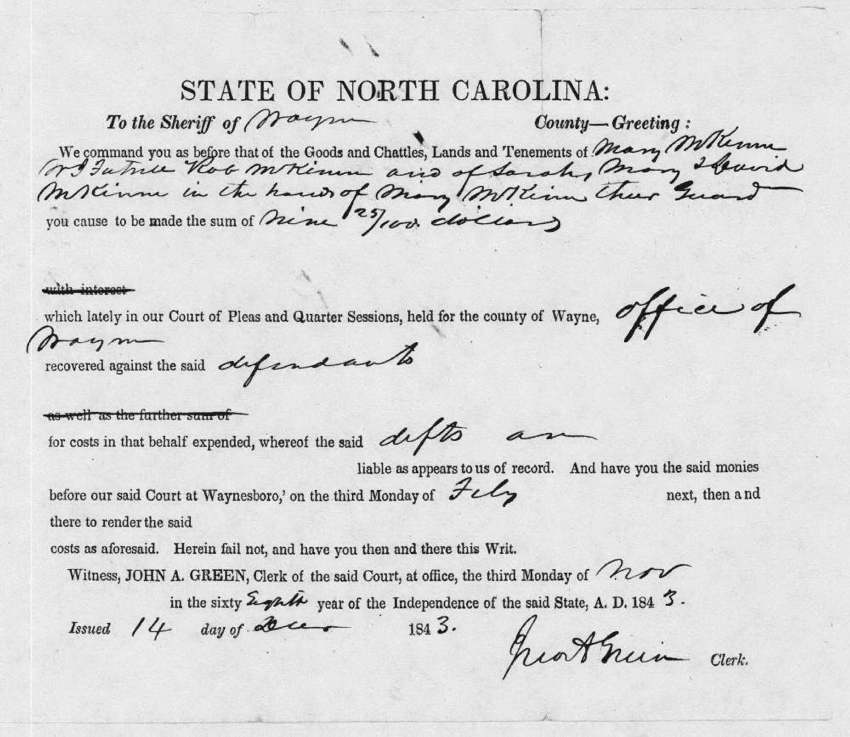 STATE OF NORTH CAROLINA:
To the Sheriff of Wayne County—Greeting:
We command you as before that of the Goods and Chattles, Lands and Tenements of Mary McKinne
Rob McKinne and of Sarah, Mary & David
McKinne in the hands of Mary McKinne their Guard
you cause to be made the sum of nine 25/100 dollars
with interest
which lately in our Court of Pleas and Quarter Sessions, held for the county of Wayne, office of
Wayne
recovered against the said defendants
as well as the further sum of
for costs in that behalf expended, whereof the said defts are
liable as appears to us of record. And have you the said monies
before our said Court at Waynesboro,' on the third Monday of Feby next, then and
there to render the said
costs as aforesaid. Herein fail not, and have you then and there this Writ.
Witness, JOHN A. GREEN, Clerk of the said Court, at office, the third Monday of Nov
in the sixty Eighth year of the Independence of the said State, A. D. 1843.
Issued 14 day of 1843.
Jno A Green Clerk.